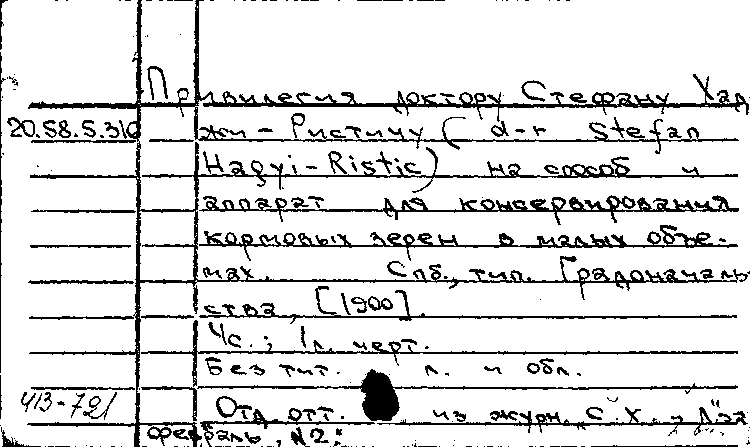 Привилегия доктору Стефану Хад
20.58.5.310 жи-Ристичу (d-r Stefan
Hagyi-Ristic) на способ и
аппарат для консервирования
кормовых зерен в малых объе-
мах. Спб., тип. Градоначаль
ства, [1900].
4с.; 1л. черт.
Без тит. л. и обл.
413-721 Отд. отт. из журн. "С.Х. и Л" за
февраль, №2.